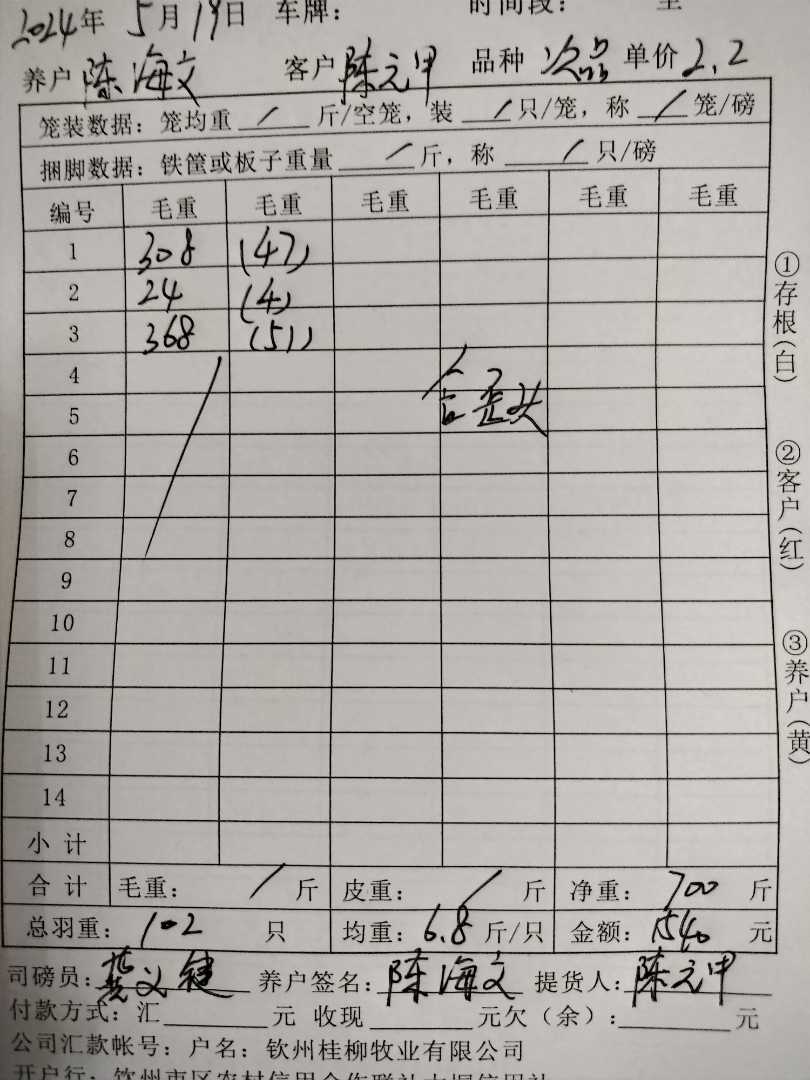 2024年 5月19日 车牌: 时间段: 至
养户 陈海文 客户 陈元甲 品种 次品 单价 2.2
笼装数据: 笼均重 / 斤/空笼, 装 / 只/笼, 称 / 笼/磅
捆脚数据: 铁筐或板子重量 / 斤, 称 / 只/磅
编号 毛重 毛重 毛重 毛重 毛重 毛重
1 308 (47)
2 24 (4)
3 368 (51)
4
含歪头
5
6
7
8
9
10
11
12
13
14
小计
合计 毛重: / 斤 皮重: / 斤 净重: 700 斤
总羽重: 102 只 均重: 6.8 斤/只 金额: 1540 元
司磅员: 义键 养户签名: 陈海文 提货人: 陈元甲
付款方式: 汇 元 收现 元欠(余): 元
公司汇款帐号: 户名: 钦州桂柳牧业有限公司
开户行: 钦州市区农村信用合作联社大垌信用社
①存根(白)
②客户(红)
③养户(黄)